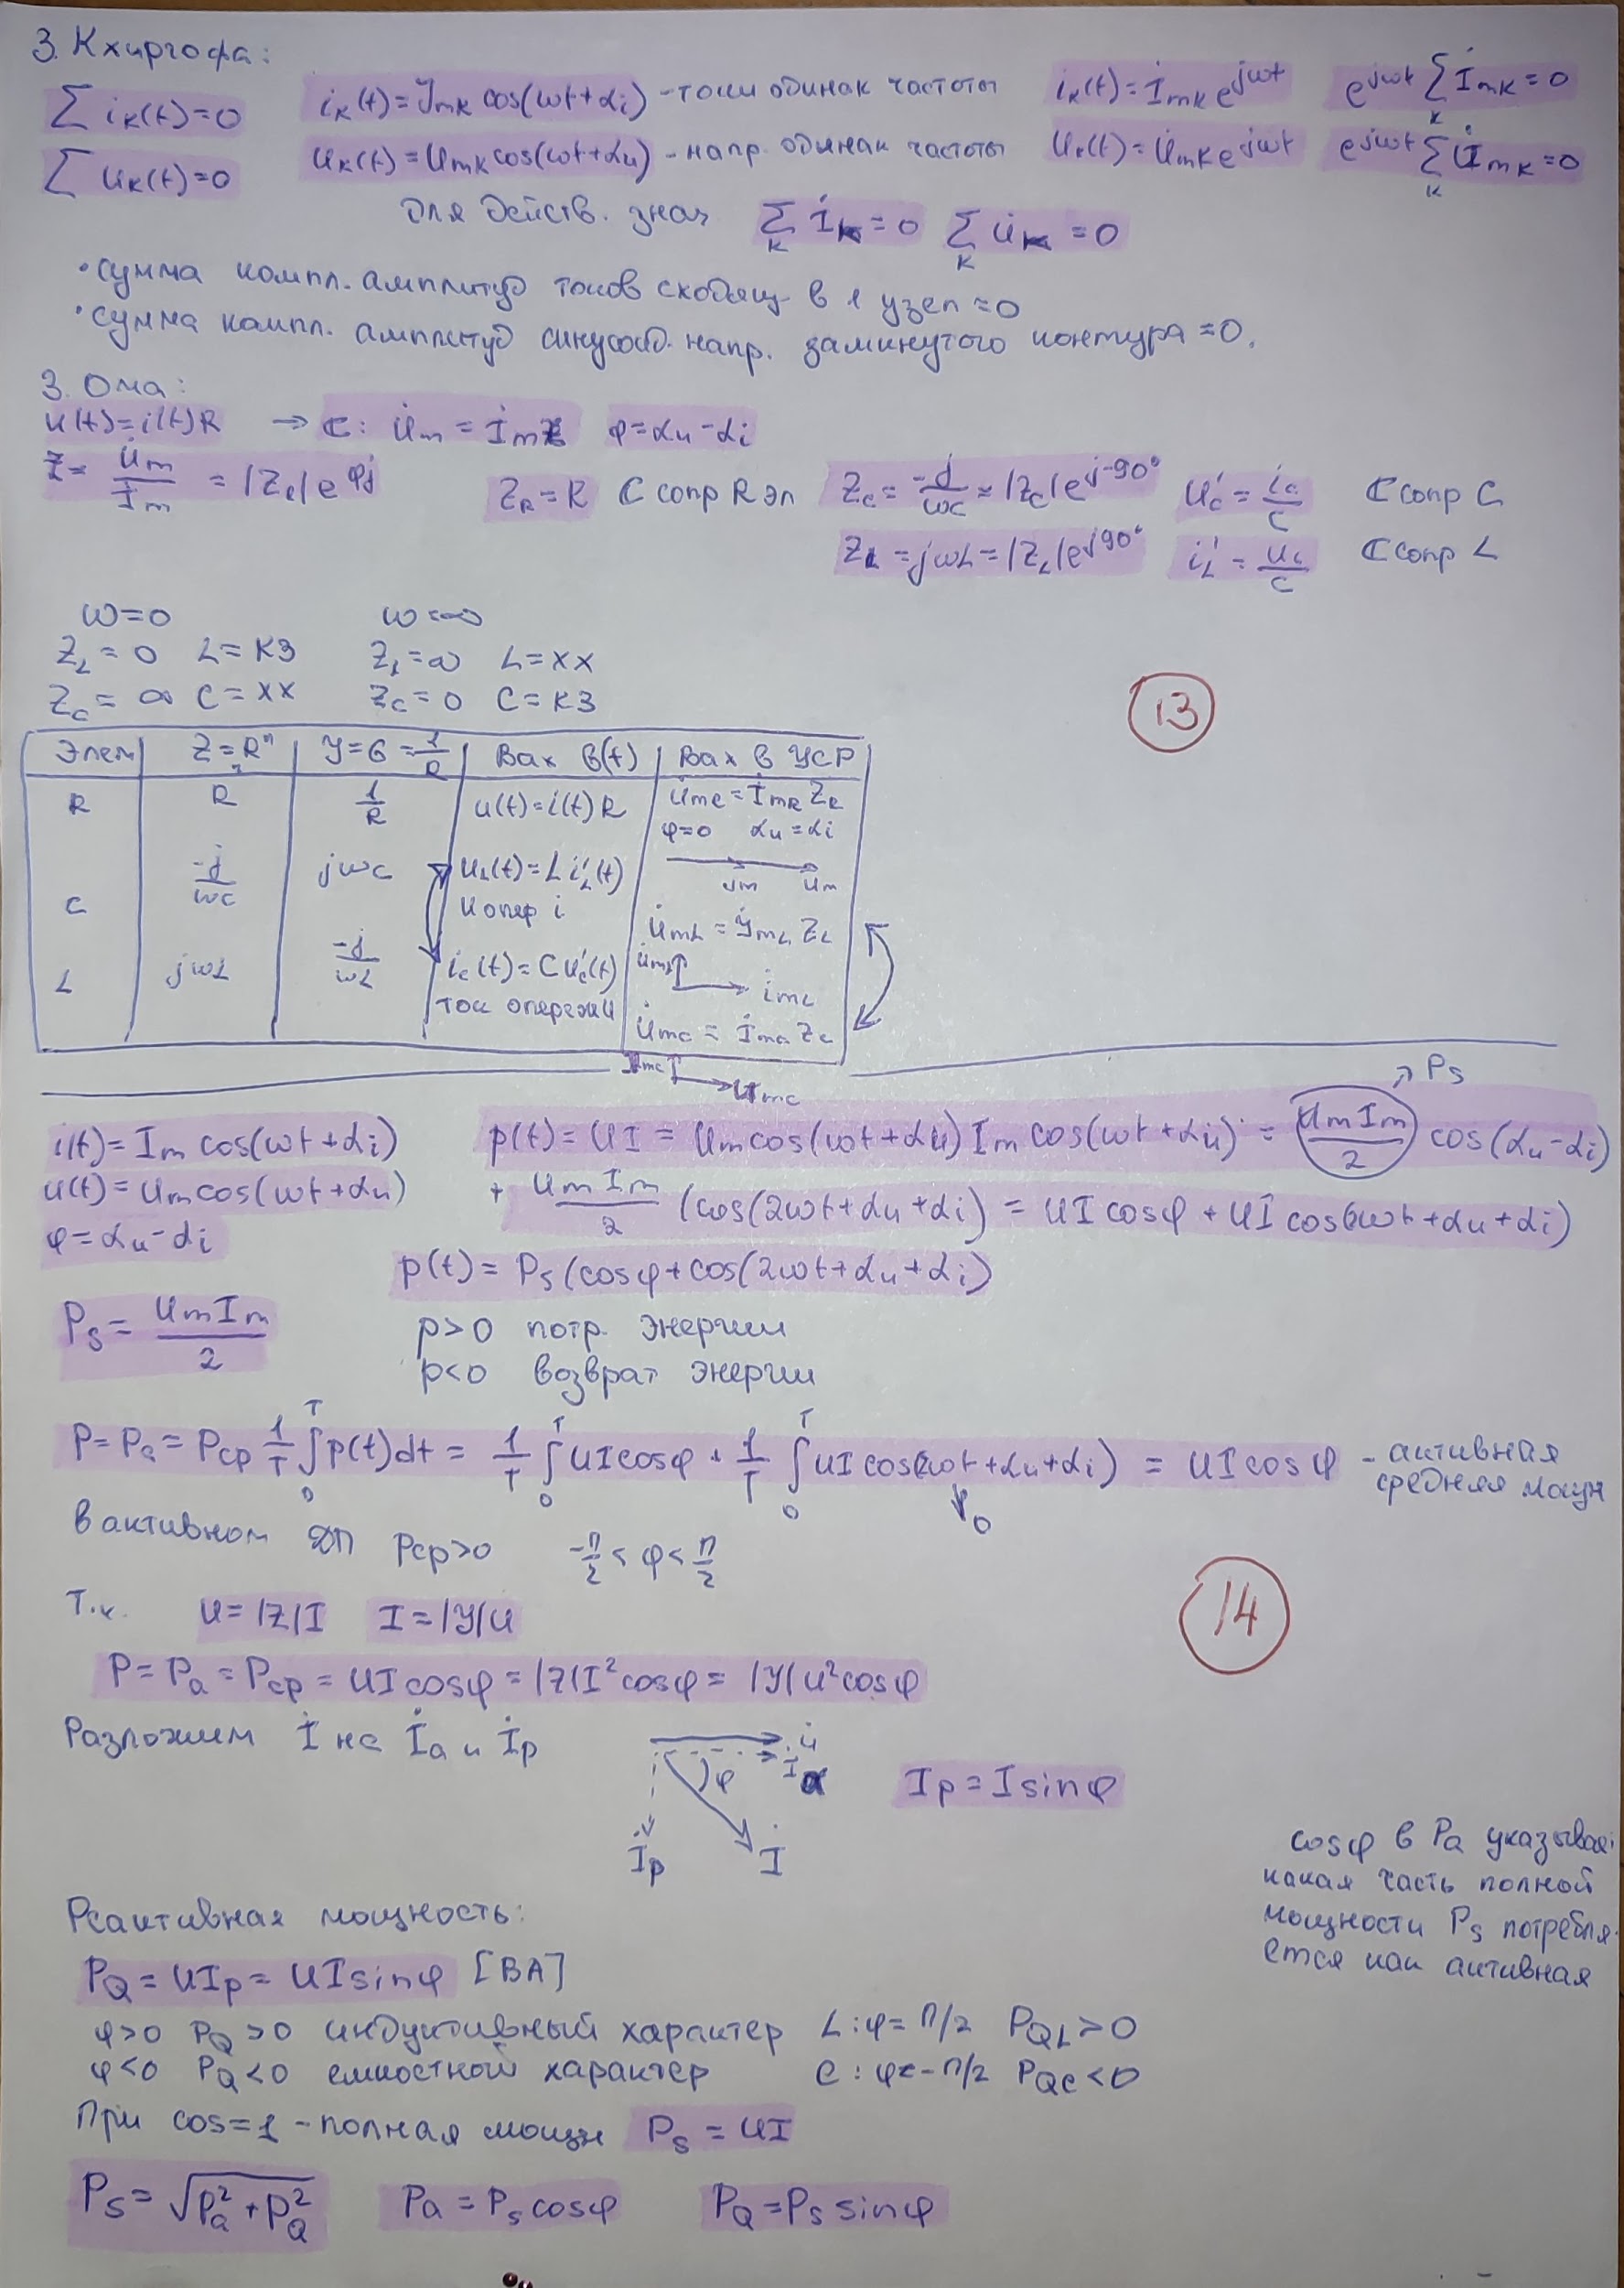 З. Кхиргофа:
∑ iₖ(t)=0   iₖ(t)=Jmₖ cos(ωt+αi) – токи одинак частоты   iₖ(t)=İmₖ e^jωt   e^jωt ∑ₖ İmₖ=0
∑ uₖ(t)=0   uₖ(t)=Umₖ cos(ωt+αu) – напр. одинак частоты   Uₖ(t)=U̇mₖ e^jωt   e^jωt ∑ₖ U̇mₖ=0
для действ. знач   ∑ₖ İₖ=0   ∑ₖ U̇ₖ=0
• сумма компл. амплитуд токов сходящ в 1 узел =0
• сумма компл. амплитуд синусоид. напр. замкнутого контура =0.
З. Ома:
u(t)=i(t)R → ℂ: U̇m = İm Z   φ=αu-αi
Z = U̇m/İm = |Z|e^φj   Z_R=R ℂ сопр R эл   Z_C = -j/ωC = |Z_C|e^j-90°   U'c = ic/C   ℂ сопр C
Z_L = jωL = |Z_L|e^j90°   i'L = uc/C   ℂ сопр L
ω=0   ω=∞
Z_L=0 L=КЗ   Z_L=∞ L=XX
Z_C=∞ C=XX   Z_C=0 C=КЗ
13
Элем   Z=R"   Y=G=1/R   Вах в(t)   Вах в УСР
R   R   1/R   u(t)=i(t)R   U̇mR=İmR Z_R
φ=0 αu=αi
C   -j/ωC   jωC   u_L(t)=L i'_L(t)   Jm Um
U опер i   U̇mL = J̇mL Z_L
L   jωL   -j/ωL   i_C(t)=C U'c(t)   U̇mL İmL
ток опережи   U̇mC = İmC Z_C
İmC U̇mC
i(t)=Im cos(ωt+αi)   p(t)=UI=Um cos(ωt+αu) Im cos(ωt+αi) = UmIm/2 cos(αu-αi)   ↗Ps
u(t)=Um cos(ωt+αu)   + UmIm/2 (cos(2ωt+αu+αi) = UI cosφ + UI cos(2ωt+αu+αi)
φ=αu-αi
p(t)=Ps(cosφ+cos(2ωt+αu+αi)
Ps = UmIm/2   p>0 потр. энергии
p<0 возврат энергии
P=Pa=Pср 1/T ∫₀ᵀ p(t)dt = 1/T ∫₀ᵀ UI cosφ + 1/T ∫₀ᵀ UI cos(2ωt+αu+αi) = UI cosφ – активная
0   средняя мощн
В активном ДП Pср>0   -π/2 < φ < π/2
Т.к. U=|Z|I   I=|Y|U
14
P=Pa=Pср=UI cosφ=|Z|I² cosφ=|Y|U² cosφ
Разложим İ на İa и İр
U̇ İa φ İр İ   Iр=I sinφ
cosφ в Pa указывае
какая часть полной
мощности Ps потребля
ется как активная
Реактивная мощность:
P_Q=UIр=UI sinφ [ВА]
φ>0 P_Q>0 индуктивный характер   L: φ=π/2 P_QL>0
φ<0 P_Q<0 емкостной характер   C: φ=-π/2 P_QC<0
При cos=1 – полная мощн   Ps=UI
Ps=√(Pa²+P_Q²)   Pa=Ps cosφ   P_Q=Ps sinφ